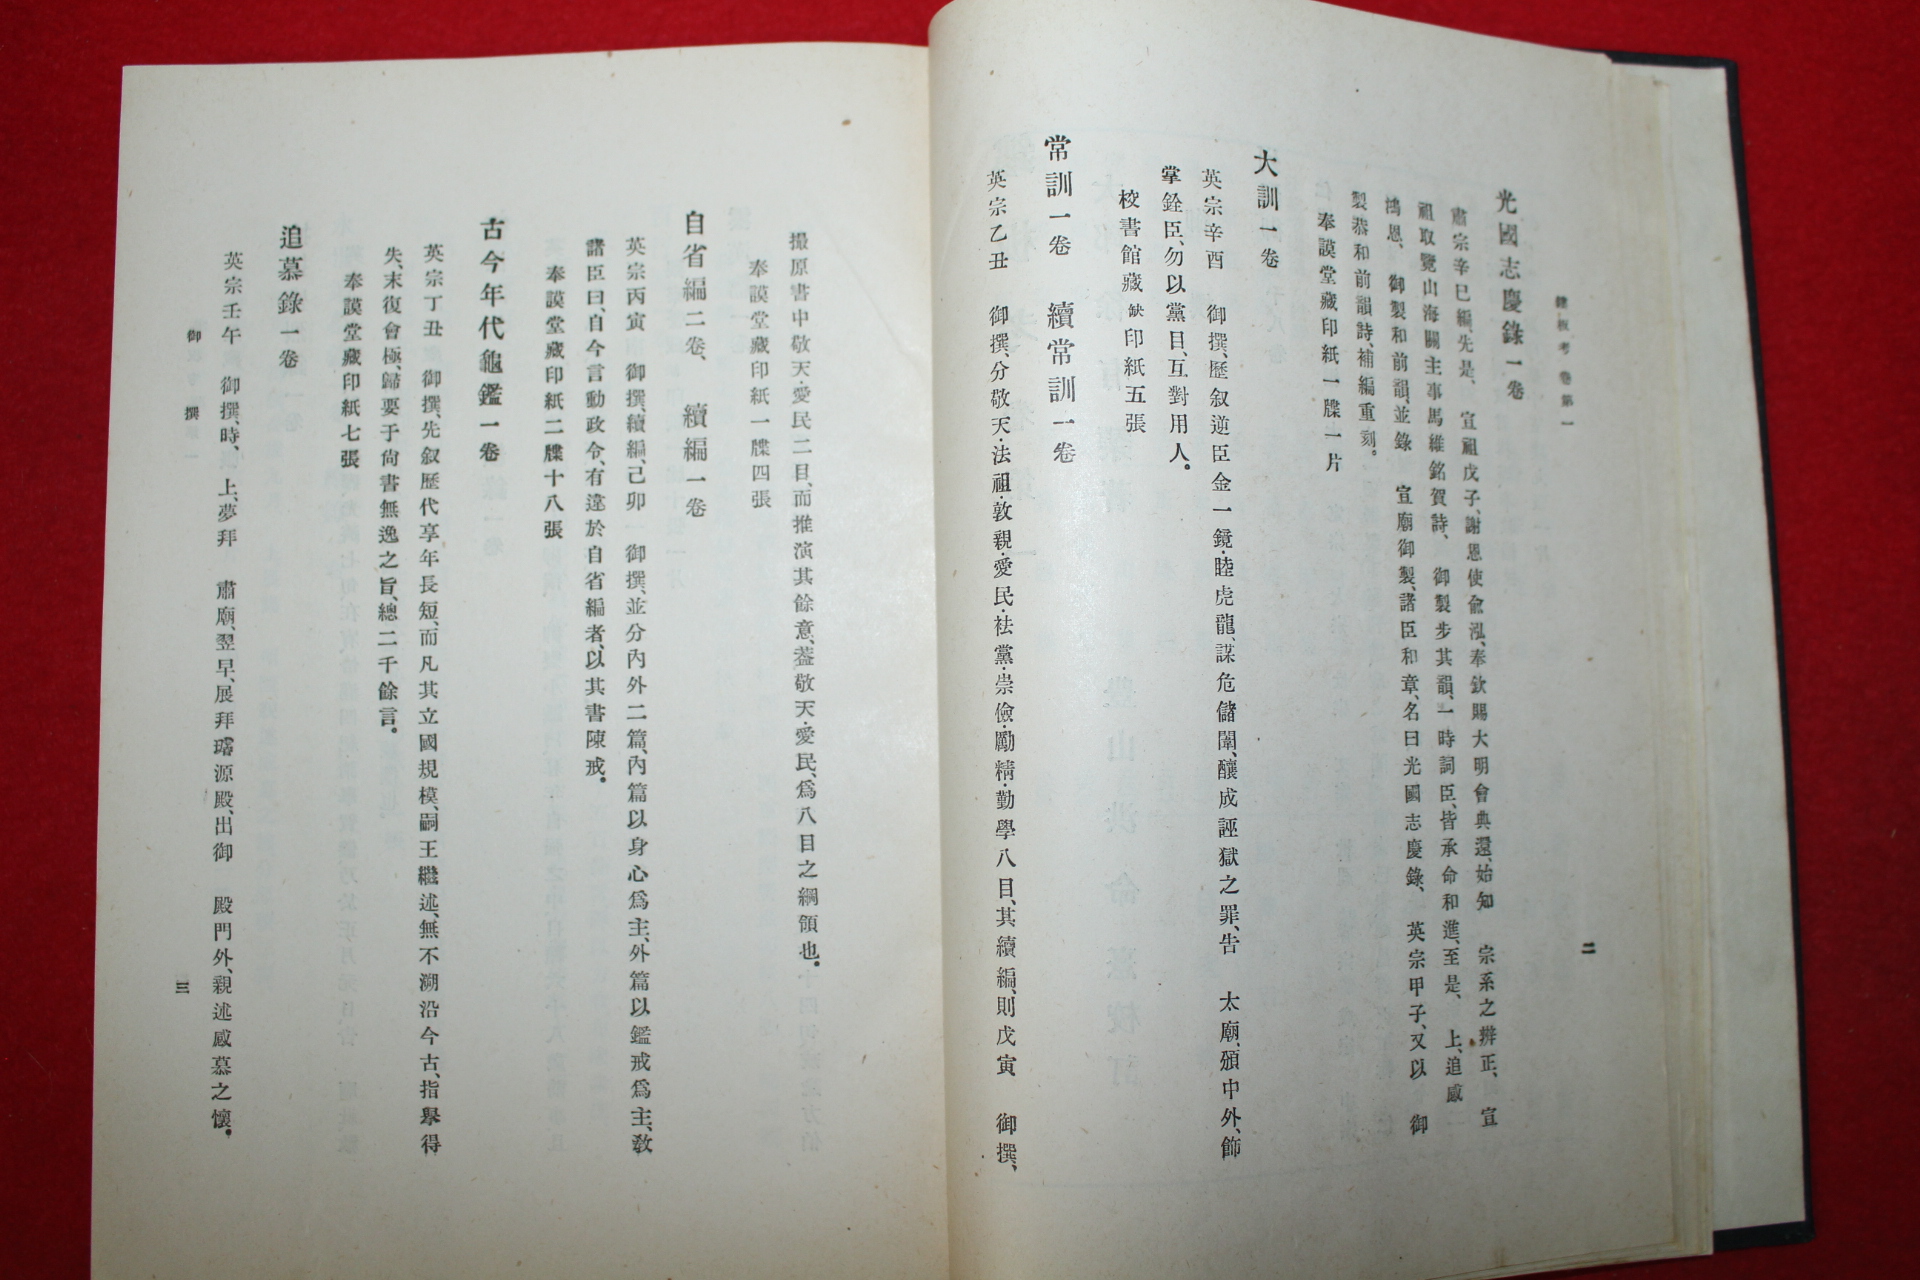 鏤板考 卷第一
二
光國志慶錄一卷
肅宗辛巳編、先是、 宣祖戊子、謝恩使兪泓、奉欽賜大明會典還、始知 宗系之辨正、 宣
祖取覽山海關主事馬維銘賀詩、 御製步其韻、一時詞臣、皆承命和進、至是、 上、追感
鴻恩、 御製和前韻、並錄 宣廟御製、諸臣和章、名曰光國志慶錄、 英宗甲子、又以 御
製恭和前韻詩、補編重刻。
奉謨堂藏印紙一牒一片
大訓一卷
英宗辛酉 御撰、歷叙逆臣金一鏡·睦虎龍、謀危儲闈、釀成誣獄之罪、告 太廟、頒中外、飾
掌銓臣、勿以黨目、互對用人。
校書館藏缺印紙五張
常訓一卷 續常訓一卷
英宗乙丑 御撰、分敬天·法祖·敦親·愛民·袪黨·崇儉·勵精·勤學八目、其續編、則戊寅 御撰、
撮原書中敬天·愛民二目、而推演其餘意、蓋敬天·愛民、爲八目之綱領也。
奉謨堂藏印紙一牒四張
自省編二卷、 續編一卷
英宗丙寅 御撰、續編、己卯 御撰、並分內外二篇、內篇以身心爲主、外篇以鑑戒爲主、敎
諸臣曰、自今言動政令、有違於自省編者、以其書陳戒。
奉謨堂藏印紙二牒十八張
古今年代龜鑑一卷
英宗丁丑 御撰、先叙歷代享年長短、而凡其立國規模、嗣王繼述、無不溯沿今古、指擧得
失、末復會極、歸要于尙書無逸之旨、總二千餘言。
奉謨堂藏印紙七張
追慕錄一卷
英宗壬午 御撰、時、 上、夢拜 肅廟、翌早、展拜璿源殿、出御 殿門外、親述感慕之懷。
御撰
三